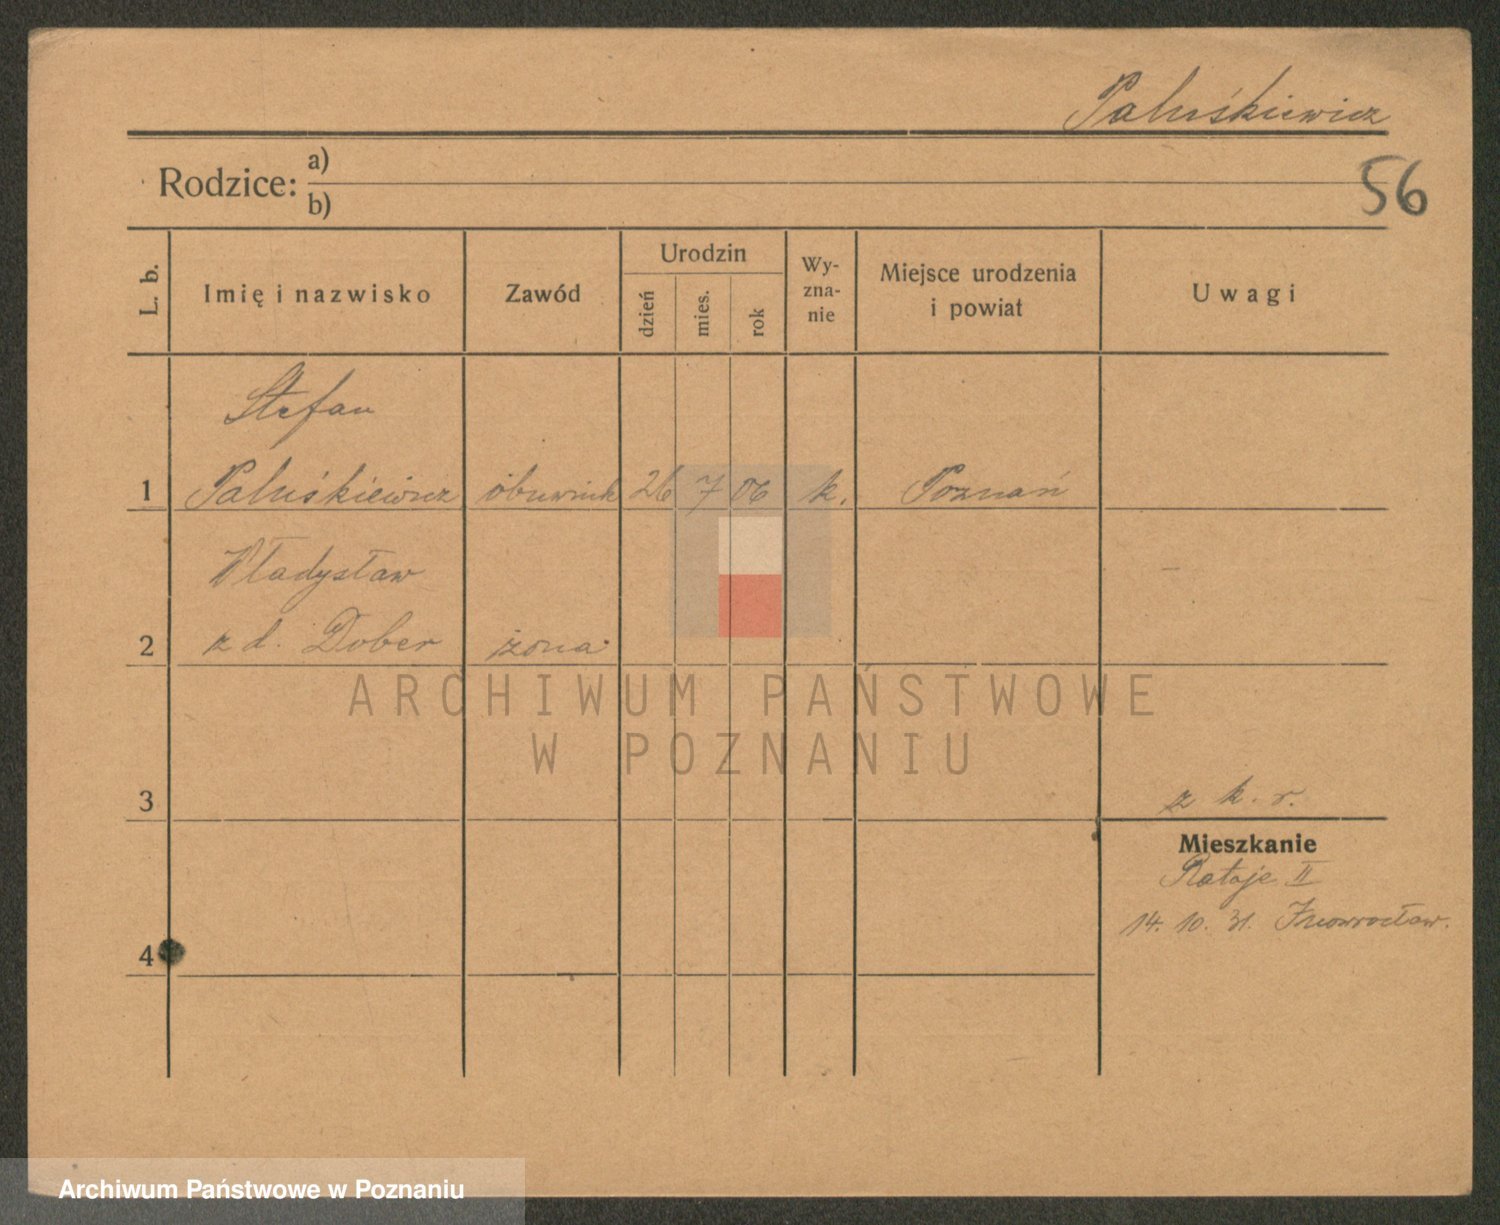 Paluśkiewicz
Rodzice: a)
b)
56
L. b.
Imię i nazwisko
Zawód
Urodzin
dzień
mies.
rok
Wy-
zna-
nie
Miejsce urodzenia
i powiat
Uwagi
Stefan
1 Paluśkiewicz obuwnik 26 7 06 k. Poznań
Władysław
2 z d. Dober żona
ARCHIWUM PAŃSTWOWE
W POZNANIU
3
z k. r.
Mieszkanie
Rataje II
14. 10. 31. Inowrocław.
4
Archiwum Państwowe w Poznaniu